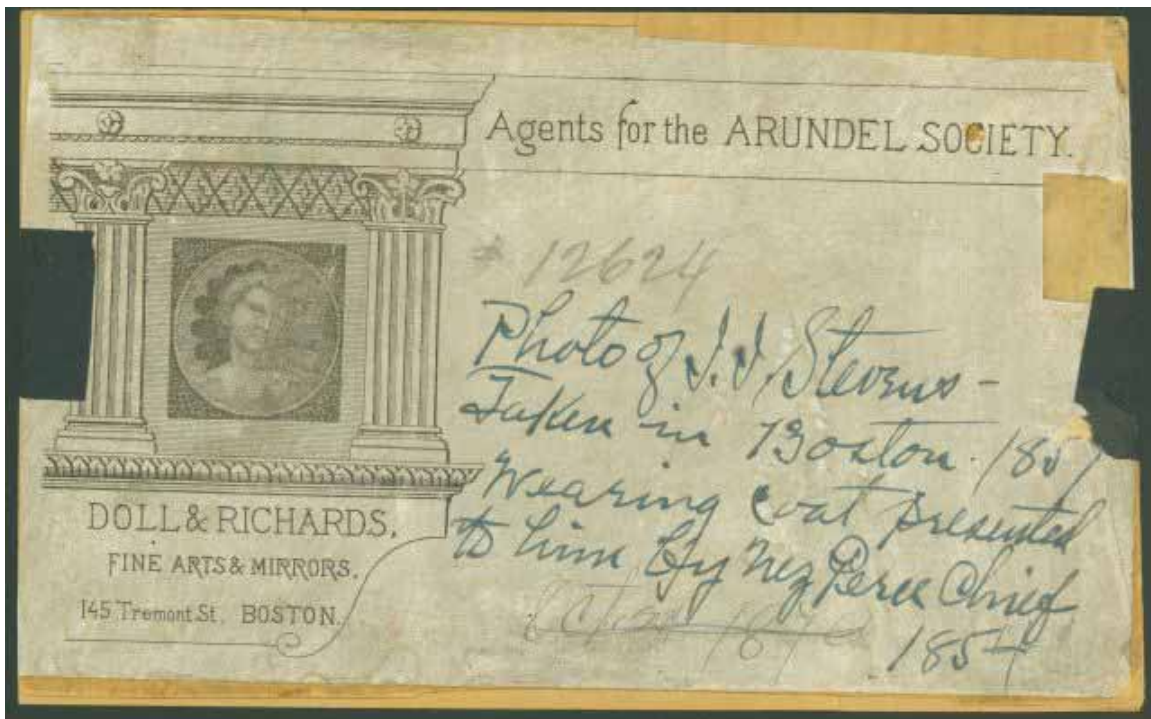 Agents for the ARUNDEL SOCIETY.
# 12624
Photo of I. I. Stevens -
Taken in Boston. 1857
Wearing coat presented
to him by Nez Perce Chief
1854
DOLL & RICHARDS,
FINE ARTS & MIRRORS.
145 Tremont St. BOSTON.